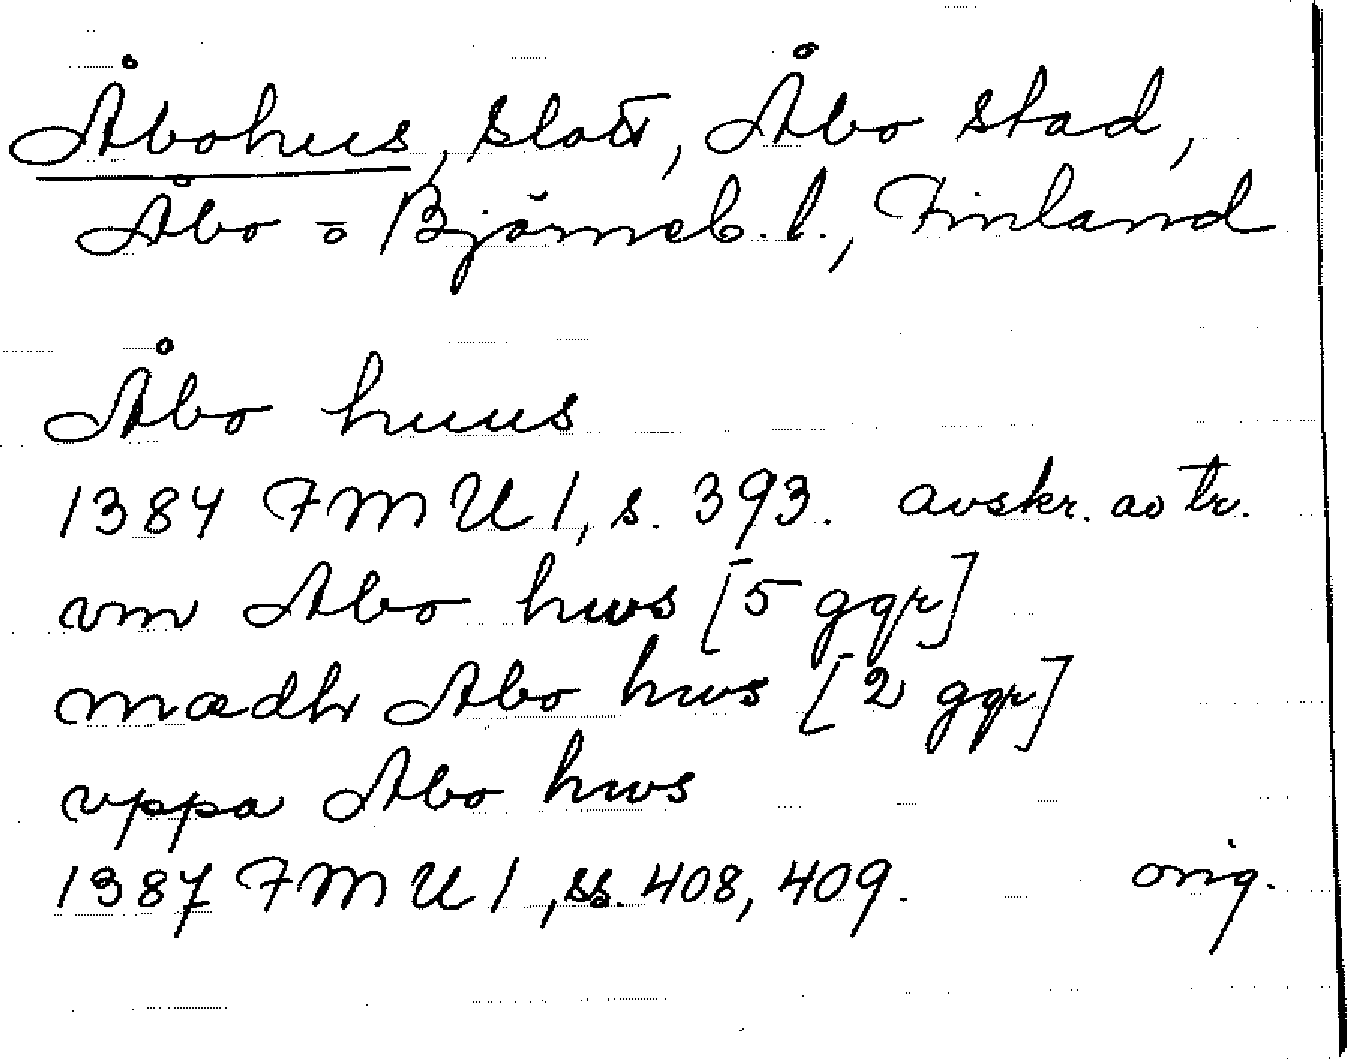 Åbohus, slott, Åbo stad,
Åbo = Björneb. l., Finland
Åbo huus
1384 FMU 1, s. 393. avskr. av tr.
vm Abo hws [5 ggr]
mædh Abo hws [2 ggr]
vppa Abo hws
1387 FMU 1, ss. 408, 409. orig.